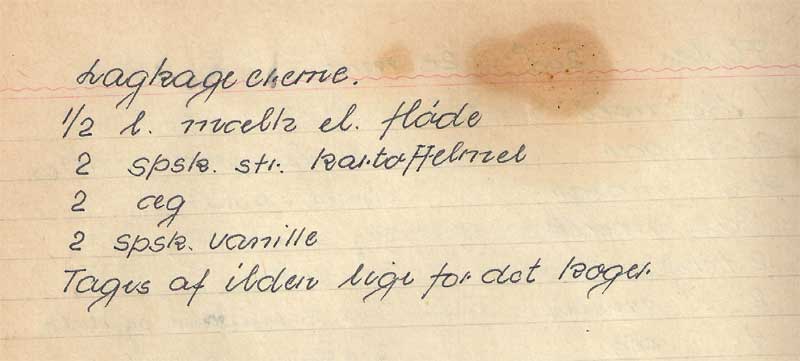 Lagkagecreme.
1/2 l. mælk el. fløde
2 spsk. str. kartoffelmel
2 æg
2 spsk. vanille
Tages af ilden lige før det koger.